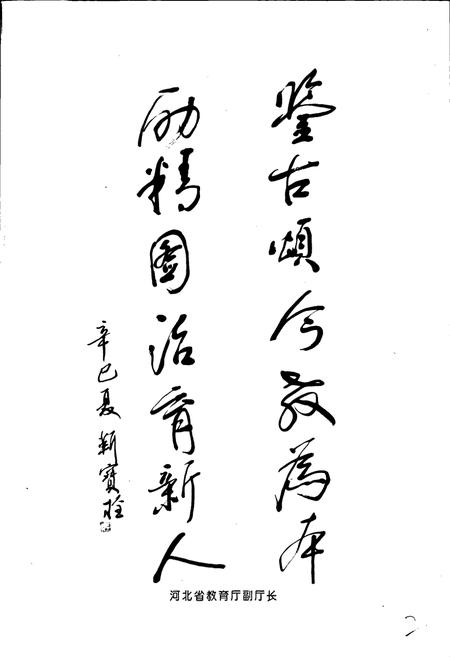 鉴古颂今教為本
励精图治育新人
辛巳夏 靳寶栓
河北省教育厅副厅长